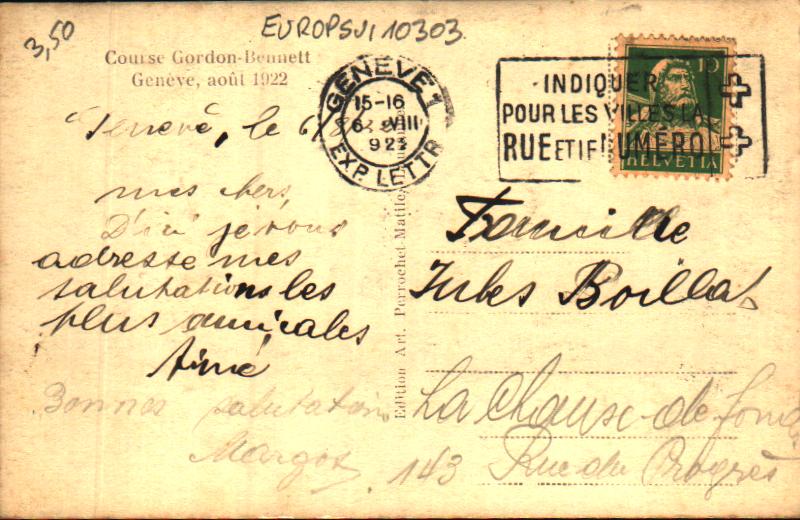 3,50
EUROPSUI 10303
Course Gordon-Bennett
Genève, août 1922
GENÈVE 1
15-16
6 VIII
923
EXP. LETTR
INDIQUER
POUR LES VILLES LA
RUE ET LE NUMÉRO
10
HELVETIA
Genève, le 6/8
mes chers,
D'ici je vous
adresse mes
salutations les
plus amicales
Aimé
Bonnes salutations
Margot
Edition Art. Perrochet-Matile,
Famille
Jules Boillat
La Chaux-de-Fonds
143 Rue du Progrès